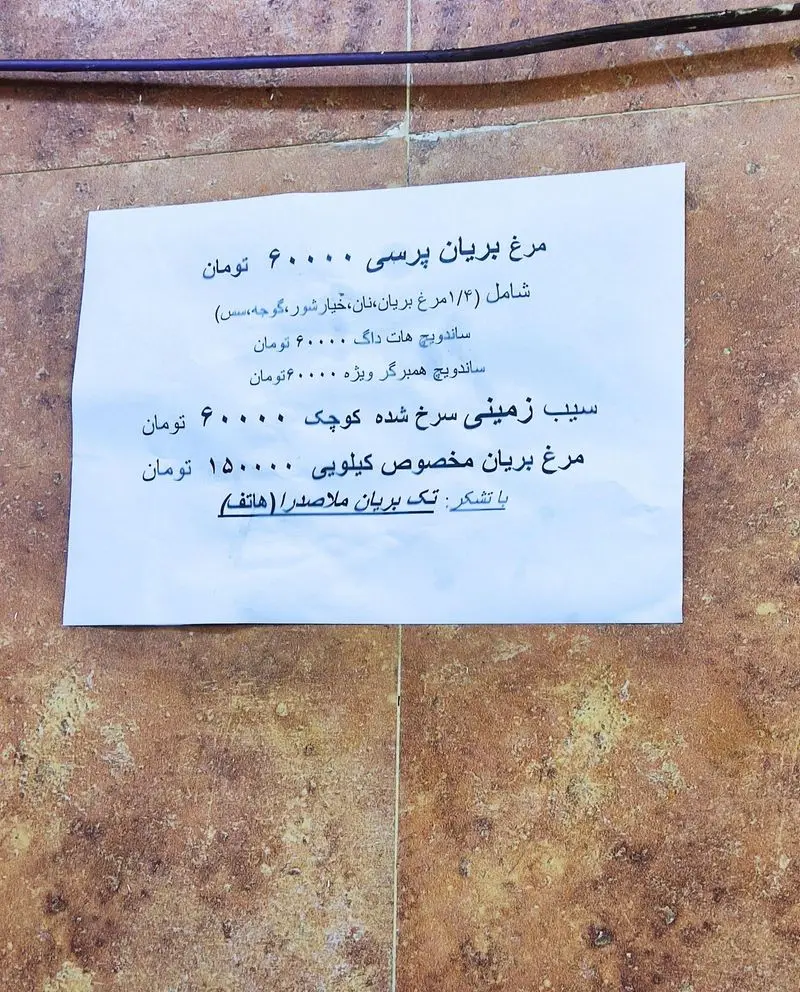 مرغ بریان پرسی ۶۰۰۰۰ تومان
شامل (۱/۴مرغ بریان،نان،خیارشور،گوجه،سس)
ساندویچ هات داگ ۶۰۰۰۰ تومان
ساندویچ همبرگر ویژه ۶۰۰۰۰تومان
سیب زمینی سرخ شده کوچک ۶۰۰۰۰ تومان
مرغ بریان مخصوص کیلویی ۱۵۰۰۰۰ تومان
با تشکر: تک بریان ملاصدرا (هاتف)